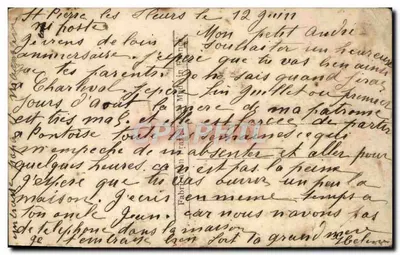 St Pierre les Fleurs le 12 Juin
Mon petit André
Je viens de loin souhaiter un heureux
anniversaire. J'espère que tu vas bien ainsi
que tes parents je ne sais quand
J'espère fin Juillet ou premier
jours d'août la mère de ma patronne
est très mal et elle est forcée de partir
a Pontoise toutes les semaines ce qui
m'empeche de m absenter et aller pour
quelques heures, ca n'est pas la peine
J'espère que tu vas ouvrir un peu la
maison, J'ecris en meme temps a
ton oncle Jean. car nous navons pas
de telephone dans la maison
Je t'embrasse bien fort ta grand mere
CPAPHIL